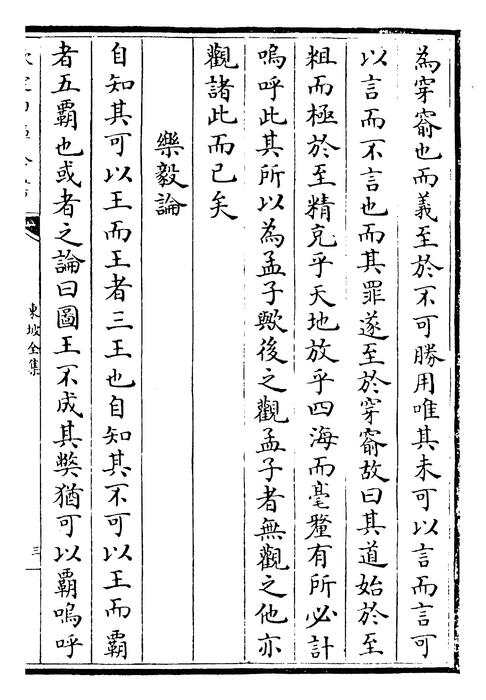 為穿窬也而義至於不可勝用唯其未可以言而言可
以言而不言也而其罪遂至於穿窬故曰其道始於至
粗而極於至精充乎天地放乎四海而毫釐有所必計
嗚呼此其所以為孟子歟後之觀孟子者無觀之他亦
觀諸此而已矣
樂毅論
自知其可以王而王者三王也自知其不可以王而霸
者五霸也或者之論曰圖王不成其獘猶可以霸嗚呼
東坡全集
三